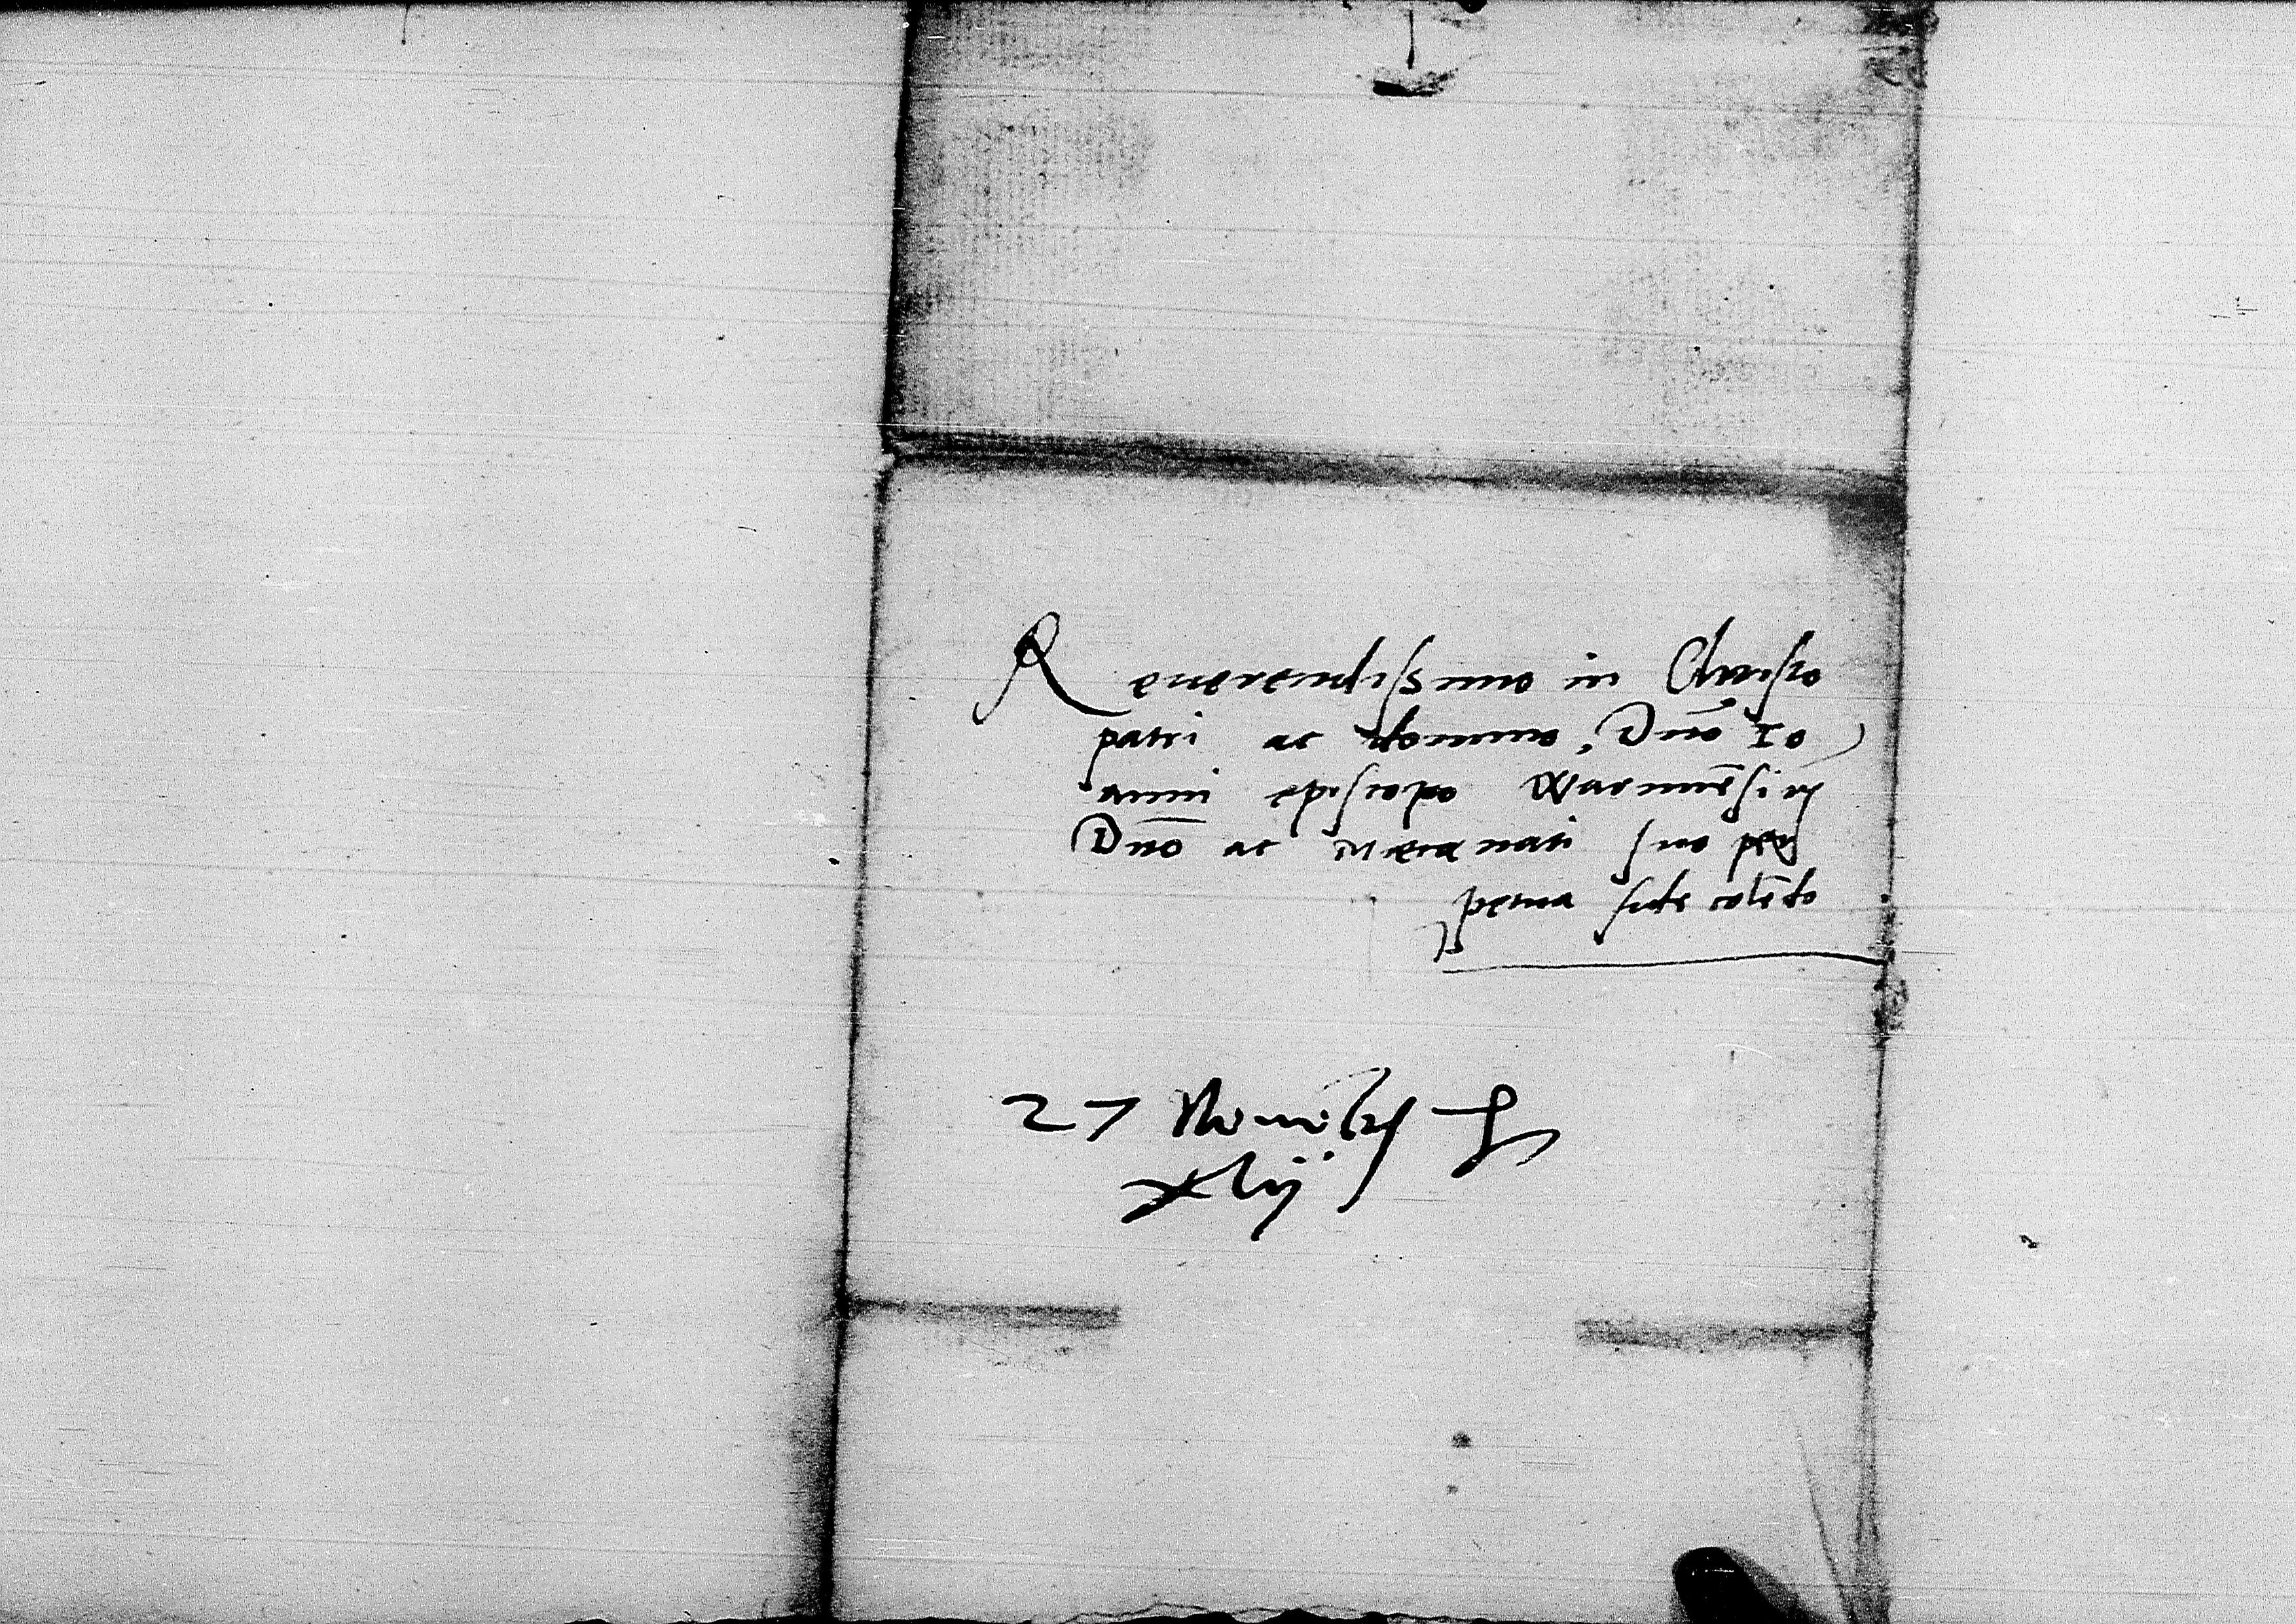 Reuerendissimo in Christo
patri ac domino, Dno Io
anni episcopo Warmiēsi
Dno ac Mecænati suo per
petua fide colēdo
27 Nouēbr
xlij